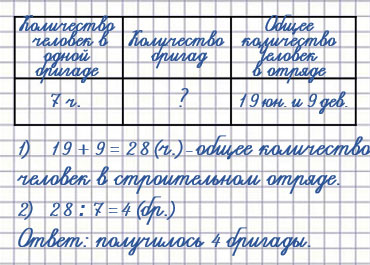 Количество человек в одной бригаде
Количество бригад
Общее количество человек в отряде
7 ч.
?
19 юн. и 9 дев.
1) 19 + 9 = 28 (ч.) – общее количество
человек в строительном отряде.
2) 28 : 7 = 4 (бр.)
Ответ: получилось 4 бригады.